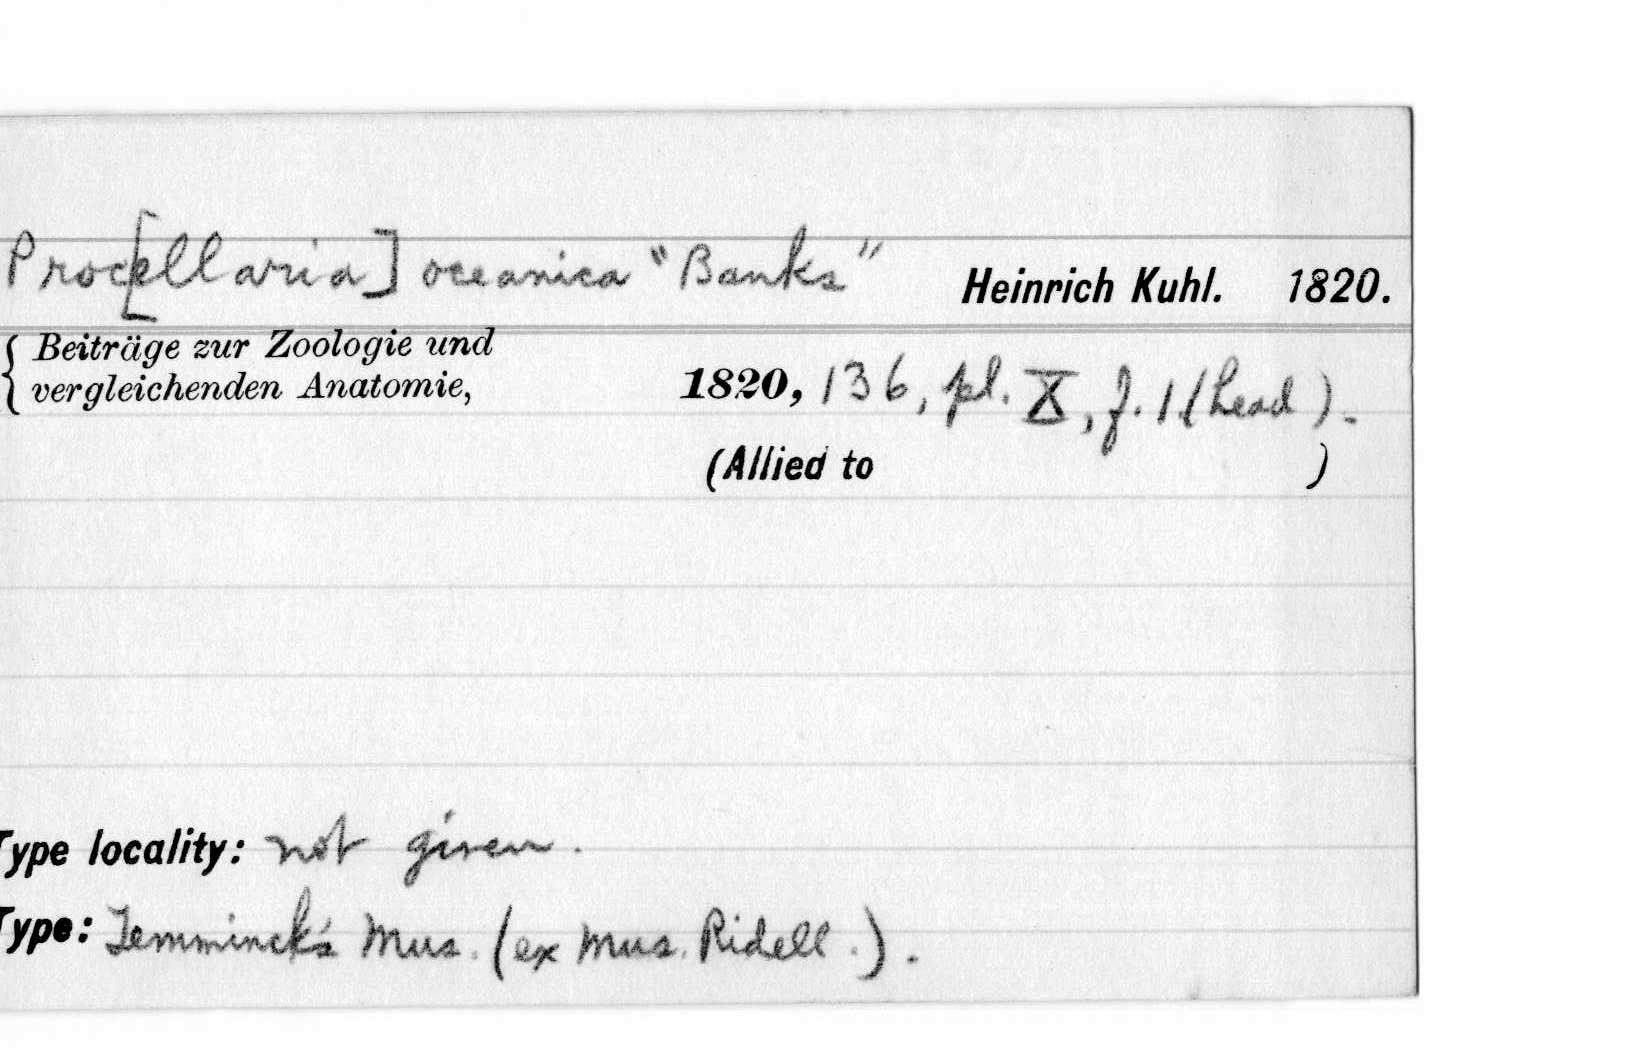 Proc[ellaria] oceanica "Banks" Heinrich Kuhl. 1820.
Beiträge zur Zoologie und
vergleichenden Anatomie, 1820, 136, pl. X, f. 1 (head).
(Allied to )
Type locality: not given.
Type: Temminck's Mus. (ex Mus. Ridell.).